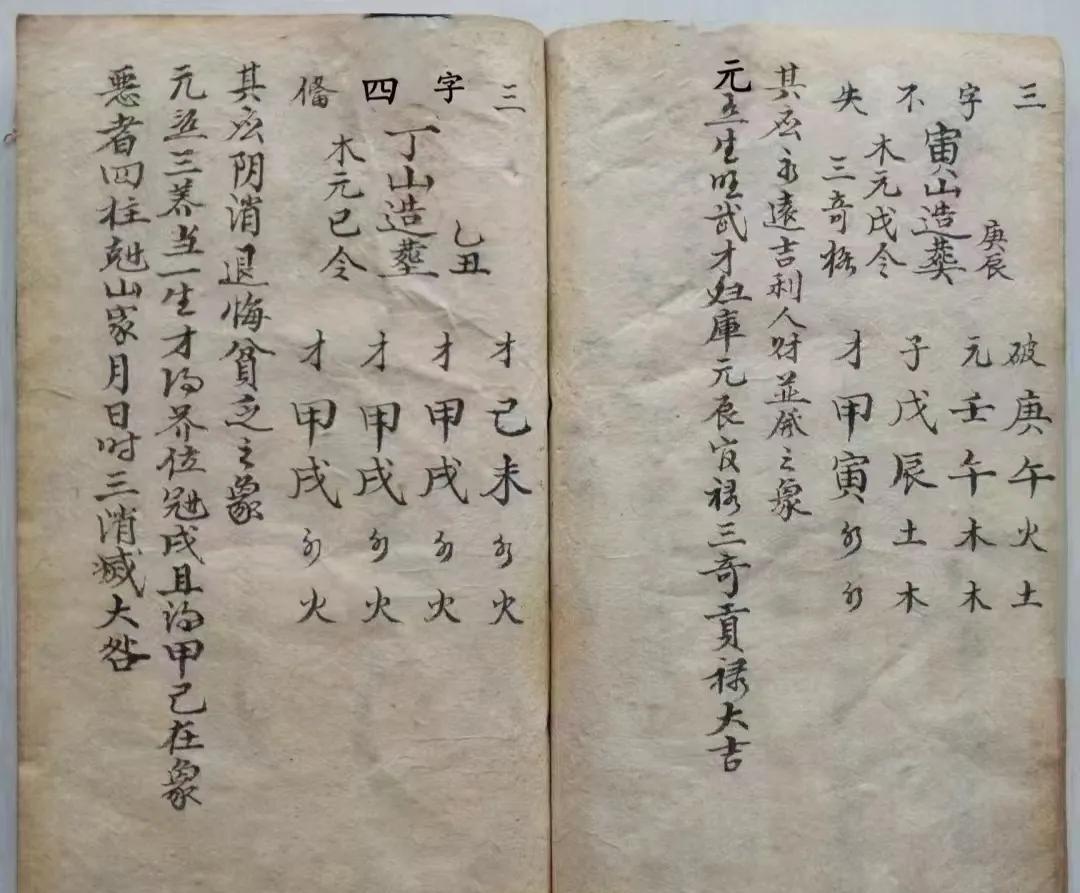 三字不失
庚辰
寅山造葬
木元戊令
三奇格
破庚午火土
元壬午木木
子戊辰土木
才甲寅水水
其应永遠吉利人财並發之象
元並生旺武才归庫元辰官禄三奇貢禄大吉
三字四備
乙丑
丁山造塟
木元已令
才己未水火
才甲戌水火
才甲戌水火
才甲戌水火
其应阴消退悔貧乏之象
元並三养当一生才为养位冠戌且为甲己在象
悪者四柱尅山家月日时三消滅大咎